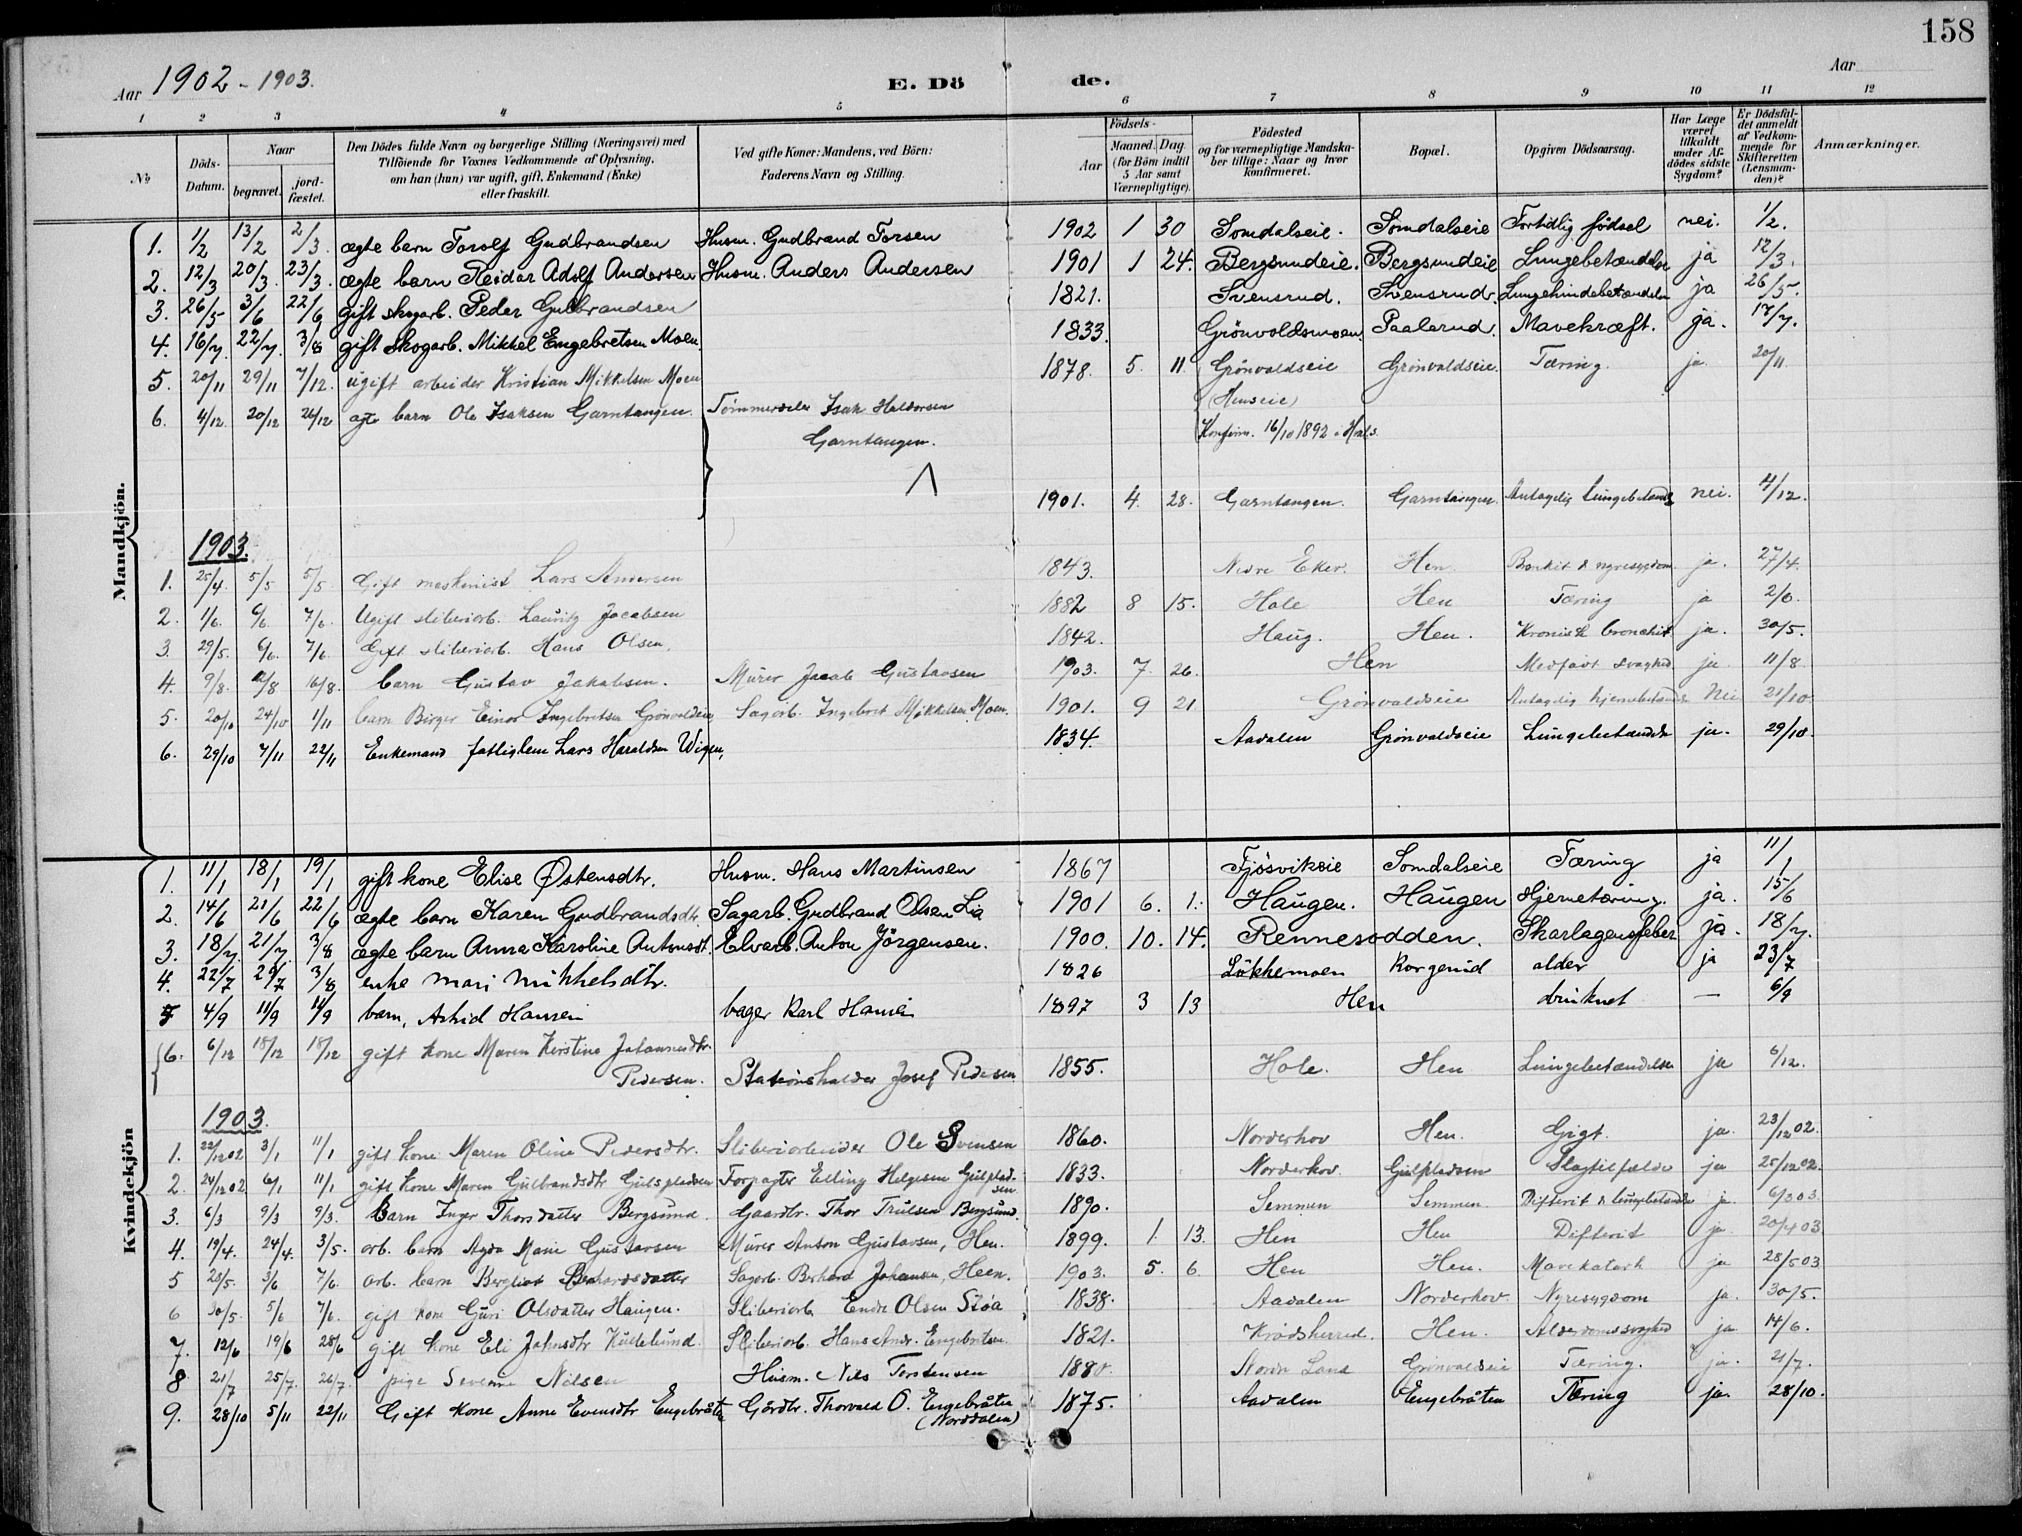 158
Aar 1902 - 1903.
E. Dö de.
Aar
1 2 3 4 5 6 7 8 9 10 11 12
No
Döds-Datum.
Naar
begravet.
jord-fæstet.
Den Dödes fulde Navn og borgerlige Stilling (Næringsvei) med
Tilföiende for Voxnes Vedkommende af Oplysning,
om han (hun) var ugift, gift, Enkemand (Enke)
eller fraskilt.
Ved gifte Koner: Mandens, ved Börn:
Faderens Navn og Stilling.
Födsels-
Aar
Maaned. Dag.
(for Börn indtil
5 Aar samt
Værnepligtige).
Födested
og for værnepligtige Mandska-
ber tillige: Naar og hvor
konfirmeret.
Bopæl.
Opgiven Dödsaarsag.
Har Læge
været
tilkaldt
under Af-
dödes sidste
Sygdom?
Er Dödsfal-
det anmeldt
af Vedkom-
mende for
Skifteretten
(Lensman-
den)?
Anmærkninger.
Mandkjön.
1. 1/2 13/2 2/3 ægte barn Torolf Gudbrandsen Husm. Gudbrand Torsen 1902 1 30 Somdalseie. Somdalseie Fortidlig födsel nei. 1/2.
2. 12/3 20/3 23/3. ægte barn Reidar Adolf Andersen Husm. Anders Andersen 1901 1 24. Bergsundeie. Bergsundeie Lungebetændelse ja 12/3.
3. 26/5 3/6 22/6 gift skogarb. Peder Gulbrandsen 1821. Svensrud. Svensrud. Lungehindebetændelse ja 26/5.
4. 16/7. 22/7. 3/8 gift Skogarb. Mikkel Engebretsen Moen. 1833. Grönvoldsmoen. Paalerud. Mavekræft. ja. 17/7.
5. 20/11 29/11 7/12. ugift arbeider Kristian Mikkelsen Moen 1878. 5. 11. Grönvoldseie Grönvoldseie. Tæring. ja. 20/11
(Henseie)
6. 4/12. 20/12 26/12 ægte barn Ole Isaksen Garntangen. Tömmermdeler Isak Haldorsen
Konfirm. 16/10 1892 i Hols.
Garntangen.
1901. 4. 28. Garntangen. Garntangen. Antagelig Lungebetænd. nei. 4/12.
1903.
1. 25/4. 5/5 5/5 Gift maskinist Lars Andersen 1843. Nedre Eker. Hen Bronkit & nyresygdom. ja. 27/4.
2. 1/6. 6/6. 7/6. Ugift sliberiarb. Lauritz Jacobsen 1882 8 15. Hole Hen Tæring ja 2/6.
3. 29/5. 6/6. 7/6. Gift sliberiarb. Hans Olsen. 1842. Haug. Hen. Kronisk bronchit ja. 30/5.
4. 9/8. /8 16/8. barn Gustav Jakobsen. Murer Jacob Gustavsen 1903. 7. 26. Hen Medfödt svaghed ja 11/8.
5. 20/10 24/10 1/11 barn Birger Einar Ingebretsen Grönvoldseie Sagarb. Ingebret Mikkelsen Moen. 1901. 9 21 Grönvoldseie Antagelig hjernebetænde Nei 21/10.
6. 29/10 7/11 22/11 Enkemand fattiglem Lars Haraldsen Wigen, 1834. Aadalen Grönvoldseie Lungebetændelse ja. 29/10.
Kvindekjön
1. 11/1 18/1 19/1 gift kone Elise Østensdtr. Husm. Hans Martinsen 1867 Fjösvikeie Somdalseie Tæring ja 11/1
2. 14/6 21/6 22/6 ægte barn Karen Gudbrandsdtr. Sagarb. Gudbrand Olsen Lia 1901 6. 1. Haugen. Haugen Hjernetæring. ja. 15/6
3. 18/7. 21/7. 3/8 ægte barn Anna Karoline Antonsdt. Elvarb. Anton Jörgensen. 1900. 10. 14. Rennesodden. Skarlagensfeber ja. 18/7.
4. 22/7 29/7 3/8 enke Mari Mikkelsdtr. 1826 Lökkemoen Korgerud alder ja 23/7
5 4/9 11/9 11/9 barn, Astrid Hansen bager Karl Hansen 1897 3 13 Hen druknet — 6/9
6. 6/12 18/12 18/12 gift kone Maren Kirstine Johannesdtr.
Pedersen. Stationsholder Josef Pedersen 1855. Hole. Hen Lungebetændelse ja 6/12.
1903.
1. 22/12 02 3/1 11/1 gift kone Maren Oline Pedersdtr. Sliberiarbeider Ole Svensen 1860. Norderhov Hen. Gigt. ja. 23/12 02.
2. 24/12 02 6/1 11/1 gift kone Maren Gulbrandsdtr Gulspladsen Forpagter Elling Helgesen Gulsplad-
sen 1833. Norderhov. Gulspladsen Slagtilfælde ja 25/12 02.
3. 6/3 9/3 9/3. barn Inger Thorsdatter Bergsund. Gaardbr. Thor Trulsen Bergsund. 1890. Semmen Semmen. Difterit & lungebetænde ja. 6/3 03.
4. 19/4. 24/4. 3/5. arb. barn Agda Marie Gustavsen Murer Anton Gustavsen, Hen. 1899. 1. 13. Hen Hen Difterit ja. 20/4 03
5 28/5. 3/6 7/6. arb. barn Bergliot Berhardsdatter Sagarb. Berhard Johansen, Heen. 1903. 5. 6. Hen Hen. Mavekatarh ja 28/5 03
6 30/5. 5/6 7/6. gift kone Guri Olsdatter Haugen. Sliberiarb Endre Olsen Stöa 1838. Aadalen Norderhov Nyresygdom ja. 30/5.
7. 12/6 19/6 28/6 gift kone Eli Johnsdtr Kittelsund. Sliberiarb. Hans Andr. Engebretsen 1821. Krödsherred. Hen. Alderdomssvaghed ja 14/6.
8 21/7 25/7. 26/7. pige Severine Nilsen Husm. Nils Torstensen 1880. Nordre Land Grönvoldseie Tæring. ja. 21/7.
9. 28/10 5/11 22/11 Gift kone Anne Evensdtr Engebråten Gårdbr. Thorvald O. Engebråten 1875. Aadalen Engebråten Tæring ja. 28/10.
(Norddalen)